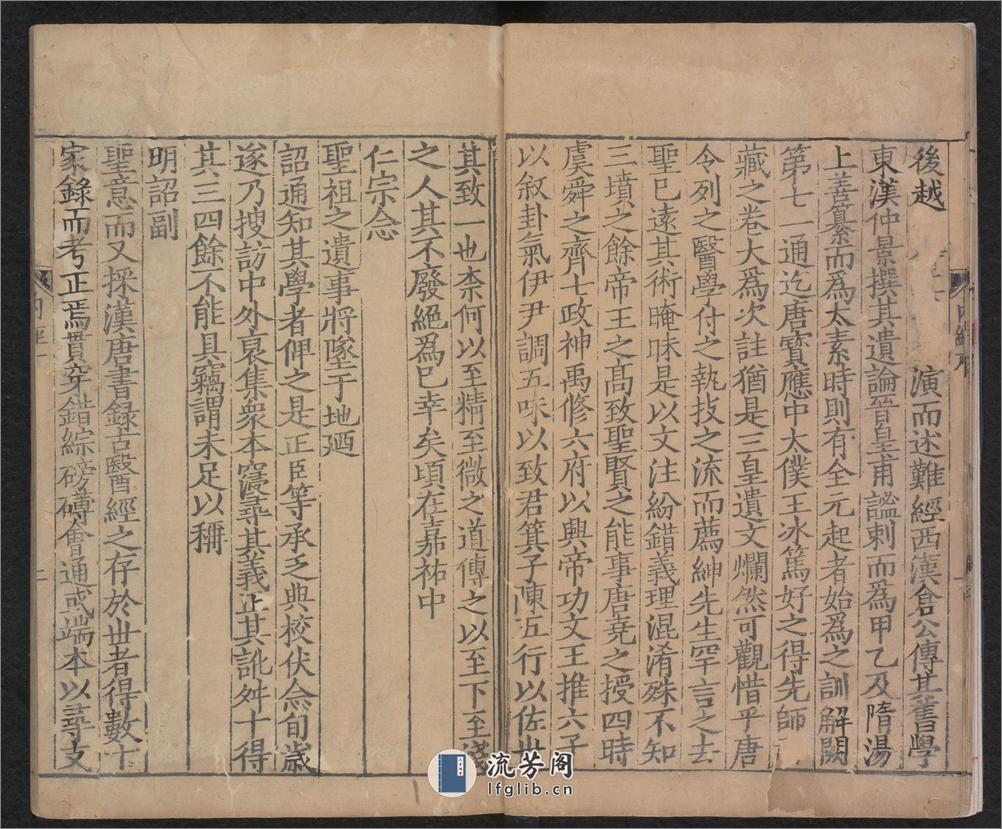 後越 演而述難經西漢倉公傳其舊學
東漢仲景撰其遺論晉皇甫謐刺而爲甲乙及隋湯
上善纂而爲太素時則有全元起者始爲之訓解闕
第七一通迄唐寶應中太僕王冰篤好之得先師
藏之卷大爲次註猶是三皇遺文爛然可觀惜乎唐
令列之醫學付之執技之流而薦紳先生罕言之去
聖已遠其術晻昧是以文注紛錯義理混淆殊不知
三墳之餘帝王之高致聖賢之能事唐堯之授四時
虞舜之齊七政神禹修六府以興帝功文王推六子
以叙卦氣伊尹調五味以致君箕子陳五行以佐世
其致一也柰何以至精至微之道傳之以至下至淺
之人其不廢絕爲已幸矣頃在嘉祐中
仁宗念
聖祖之遺事將墜于地廼
詔通知其學者俾之是正臣等承乏典校伏念旬歲
遂乃搜訪中外裒集衆本寖尋其義正其訛舛十得
其三四餘不能具竊謂未足以稱
明詔副
聖意而又採漢唐書録古醫經之存於世者得數十
家錄而考正焉貫穿錯綜磅礴會通或端本以尋支
內經
二
流芳阁
lfglib.cn